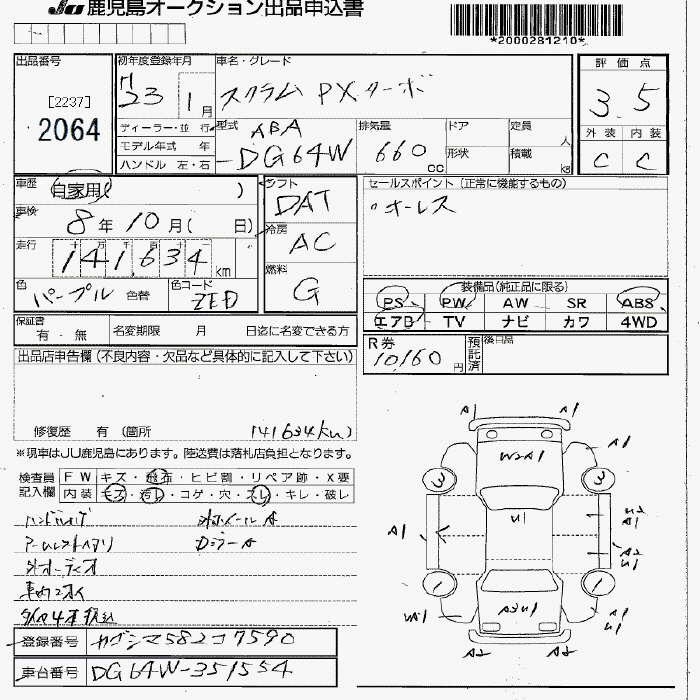 JU鹿児島オークション出品申込書
*2000281210*
出品番号
[2237]
2064
初年度登録年月
H23 1月
車名・グレード
スクラム PXターボ
評価点
3.5
外装 内装
C C
ディーラー・並行
モデル年式 年
ハンドル 左・右
型式
ABA
DG64W
排気量
660 cc
ドア
形状
定員
人
積載
kg
車歴
自家用( )
車検
8年10月( 日)
走行
十万千百十一
141,634 km
色
パープル 色替
色コード
ZED
シフト
DAT
冷房
AC
燃料
G
セールスポイント (正常に機能するもの)
キーレス
装備品(純正品に限る)
PS PW AW SR ABS
エアB TV ナビ カワ 4WD
保証書
有・無
名変期限 月 日迄に名変できる方
R券
10160円
預託済
後日品
出品店申告欄(不良内容・欠品など具体的に記入して下さい)
修復歴 有 (箇所 141634km)
※現車はJU鹿児島にあります。陸送費は落札店負担となります。
検査員
記入欄
FW キズ・飛石・ヒビ割・リペア跡・X要
内装 キズ・汚レ・コゲ・穴・スレ・キレ・破レ
登録番号 カゴシマ582コ7590
車台番号 DG64W-351554
A1 A1
W2A1
A1
3 3
U1
A1
U2
A1
A2
U1
1 1
A3U1
A2 A2